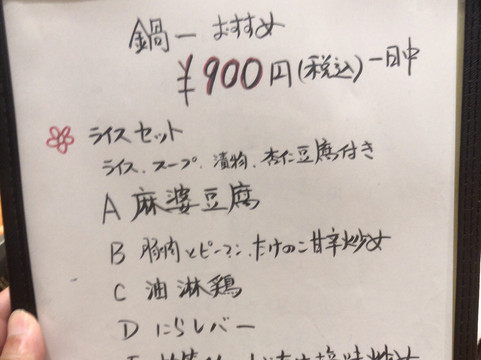 鍋一 おすすめ
¥900円(税込)一日中
ライスセット
ライス、スープ、漬物、杏仁豆腐付き
A 麻婆豆腐
B 豚肉とピーマン、たけのこ甘辛炒め
C 油淋鶏
D にらレバー